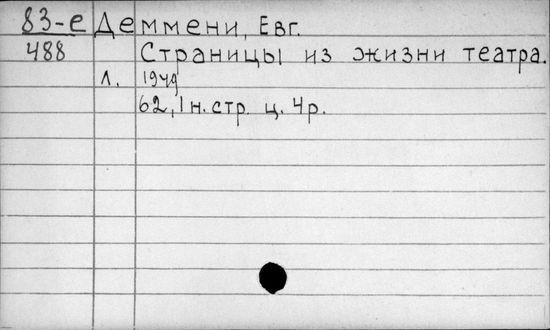 83-е Деммени, Евг.
488 Страницы из жизни театра.
Л. 1949
62, 1 н. стр. ц. 4 р.